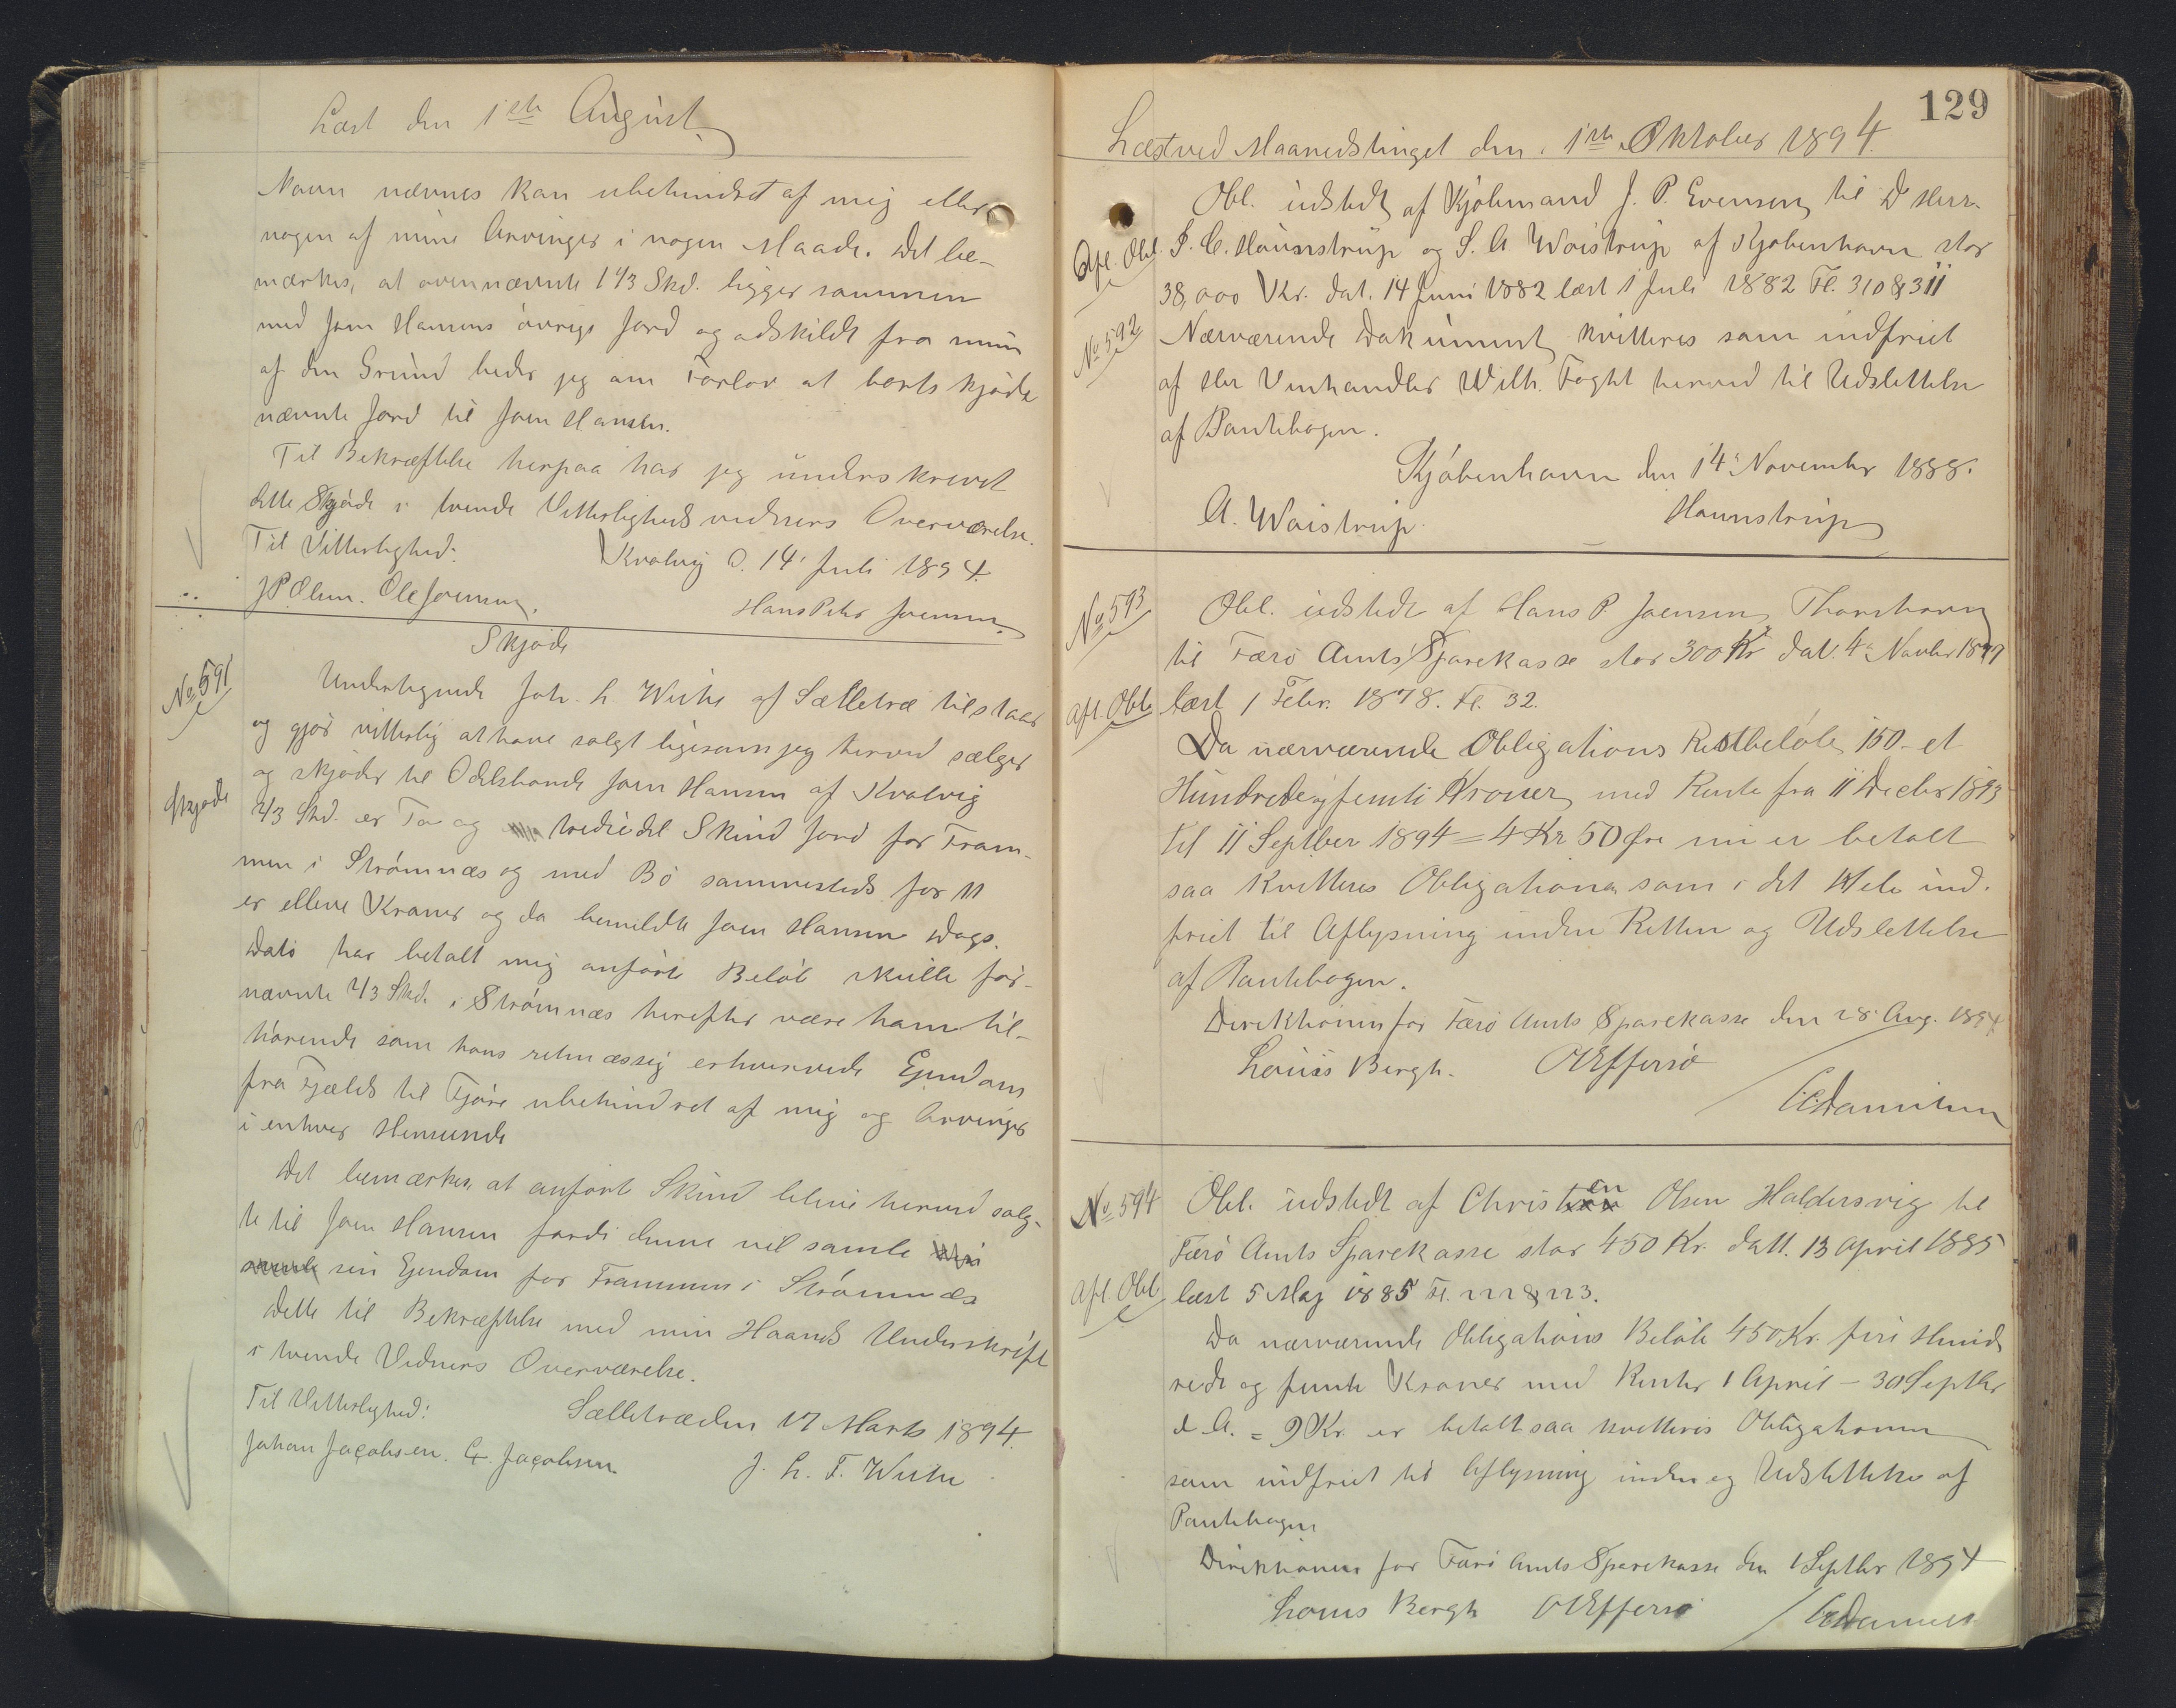 Læst den 1ste August
Navn nævnes kan ubehindret af mig eller
nogen af mine Arvinger i nogen Maade. Det be-
mærkes, at ovennævnte 1 1/3 Skd. ligger sammen
med Joen Hansens øvrige Jord og adskildt fra min
af den Grund beder jeg om Forlov at bortskjøde
nævnte Jord til Joen Hansen.
Til Bekræftelse herpaa har jeg underskrevet
dette Skjøde i tvende Vitterligheds vidners Overværelse.
Til Vitterlighed: Kvalvig d. 14' Juli 1894.
J P Olsen. Ole Joensen. Hans Peter Joensen.
Skjøde
No 591
Undertegnede Joh. L. Weihe af Sælletræ tilstaar
og gjør vitterlig at have solgt ligesom jeg herved sælger
og skjøder til Odelsbonde Joen Hansen af Kvalvig
Skjøde
2/3 Skd. er To og trediedel Skind Jord for Fram-
men i Strømnæs og med Bø sammesteds for 11
er elleve Kroner og da bemeldte Joen Hansen Dags
Dato har betalt mig anførte Beløb skulle før-
nævnte 2/3 Skd. i Strømnæs herefter være ham til-
hørende som hans retmæssig erhvervede Ejendom
fra Fjælds til Fjøre ubehindret af mig og Arvinger
i enhver Henseende
Det bemærkes, at anført Skind bleve herved solg-
te til Joen Hansen fordi denne vil samle
sin Ejendom for Frammen i Strømnæs
Dette til Bekræftelse med min Haands Underskrift
i tvende Vidners Overværelse.
Til Vitterlighed: Sælletræ den 17 Marts 1894.
Johan Jacobsen. G. Jacobsen. J. L. F. Weihe
129
Læst ved Maanedstinget den 1ste Oktober 1894.
Obl. udstedt af Kjøbmand J. P. Evensen til D Herr.
Afl. Obl. P. C. Haunstrup og S. A Waistrup af Kjøbenhavn stor
38,000 Kr. dat. 14 Juni 1882 læst 1 Juli 1882 Fl. 310 & 311
No 592
Nærværende Dokument kvitteres som indfriet
af Herr Vinhandler Wilh. Foght herved til Udslettelse
af Pantebogen.
Kjøbenhavn den 14' November 1888.
A. Waistrup. Haunstrup
No 593
Obl. udstedt af Hans P Joensen, Thorshavn
til Færø Amts Sparekasse stor 300 Kr dat. 4' Novbr 1877
Afl. Obl. læst 1 Febr. 1878. Fl. 32.
Da nærværende Obligations Restbeløb 150 et
Hundrede og femti Kroner med Rente fra 11 Decbr 1893
til 11 Septber 1894 = 4 Kr 50 Øre nu er betalt
saa kvitteres Obligationen som i det Hele ind-
friet til Aflysning inden Retten og Udslettelse
af Pantebogen.
Direktionen for Færø Amts Sparekasse den 28' Aug. 1894
Louis Bergh. O Effersø
/ C Danielsen
No 594
Obl. udstedt af Christen Olsen Haldersvig til
Færø Amts Sparekasse stor 450 Kr. datt. 13 April 1885
Afl. Obl. læst 5 Maj 1885 Fl. 222 & 223.
Da nærværende Obligations Beløb 450 Kr. fire Hund
rede og femti Kroner med Renter 1 April - 30 Septbr
d. A. = 9 Kr. er betalt saa kvitteres Obligationen
som indfriet til Aflysning inden og Udslettelse af
Pantebogen
Direktionen for Færø Amts Sparekasse den 1 Septbr 1894
Louis Bergh O Effersø / C Daniels